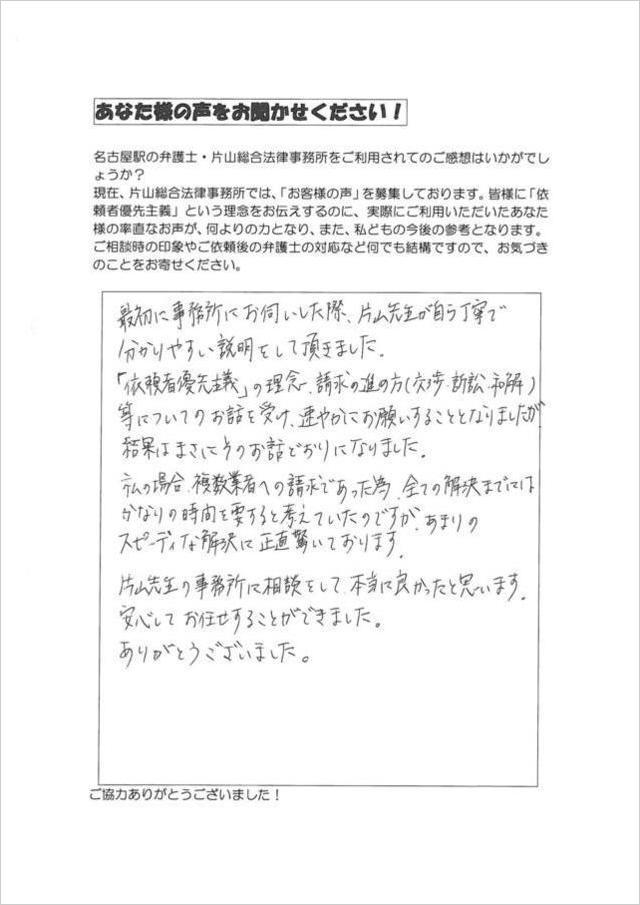 あなた様の声をお聞かせください！
名古屋駅の弁護士・片山総合法律事務所をご利用されてのご感想はいかがでし
ょうか？
現在、片山総合法律事務所では、「お客様の声」を募集しております。皆様に「依
頼者優先主義」という理念をお伝えするのに、実際にご利用いただいたあなた
様の率直なお声が、何よりの力となり、また、私どもの今後の参考となります。
ご相談時の印象やご依頼後の弁護士の対応など何でも結構ですので、お気づき
のことをお寄せください。
最初に事務所にお伺いした際、片山先生が自ら丁寧で
分かりやすい説明をして頂きました。
「依頼者優先主義」の理念、請求の進め方(交渉・訴訟・和解)
等についてのお話を受け、速やかにお願いすることとなりましたが
結果はまさにそのお話どおりになりました。
私の場合、複数業者への請求であった為、全ての解決までには
かなりの時間を要すると考えていたのですが、あまりの
スピーディな解決に正直驚いております。
片山先生の事務所に相談をして、本当に良かったと思います。
安心してお任せすることができました。
ありがとうございました。
ご協力ありがとうございました！